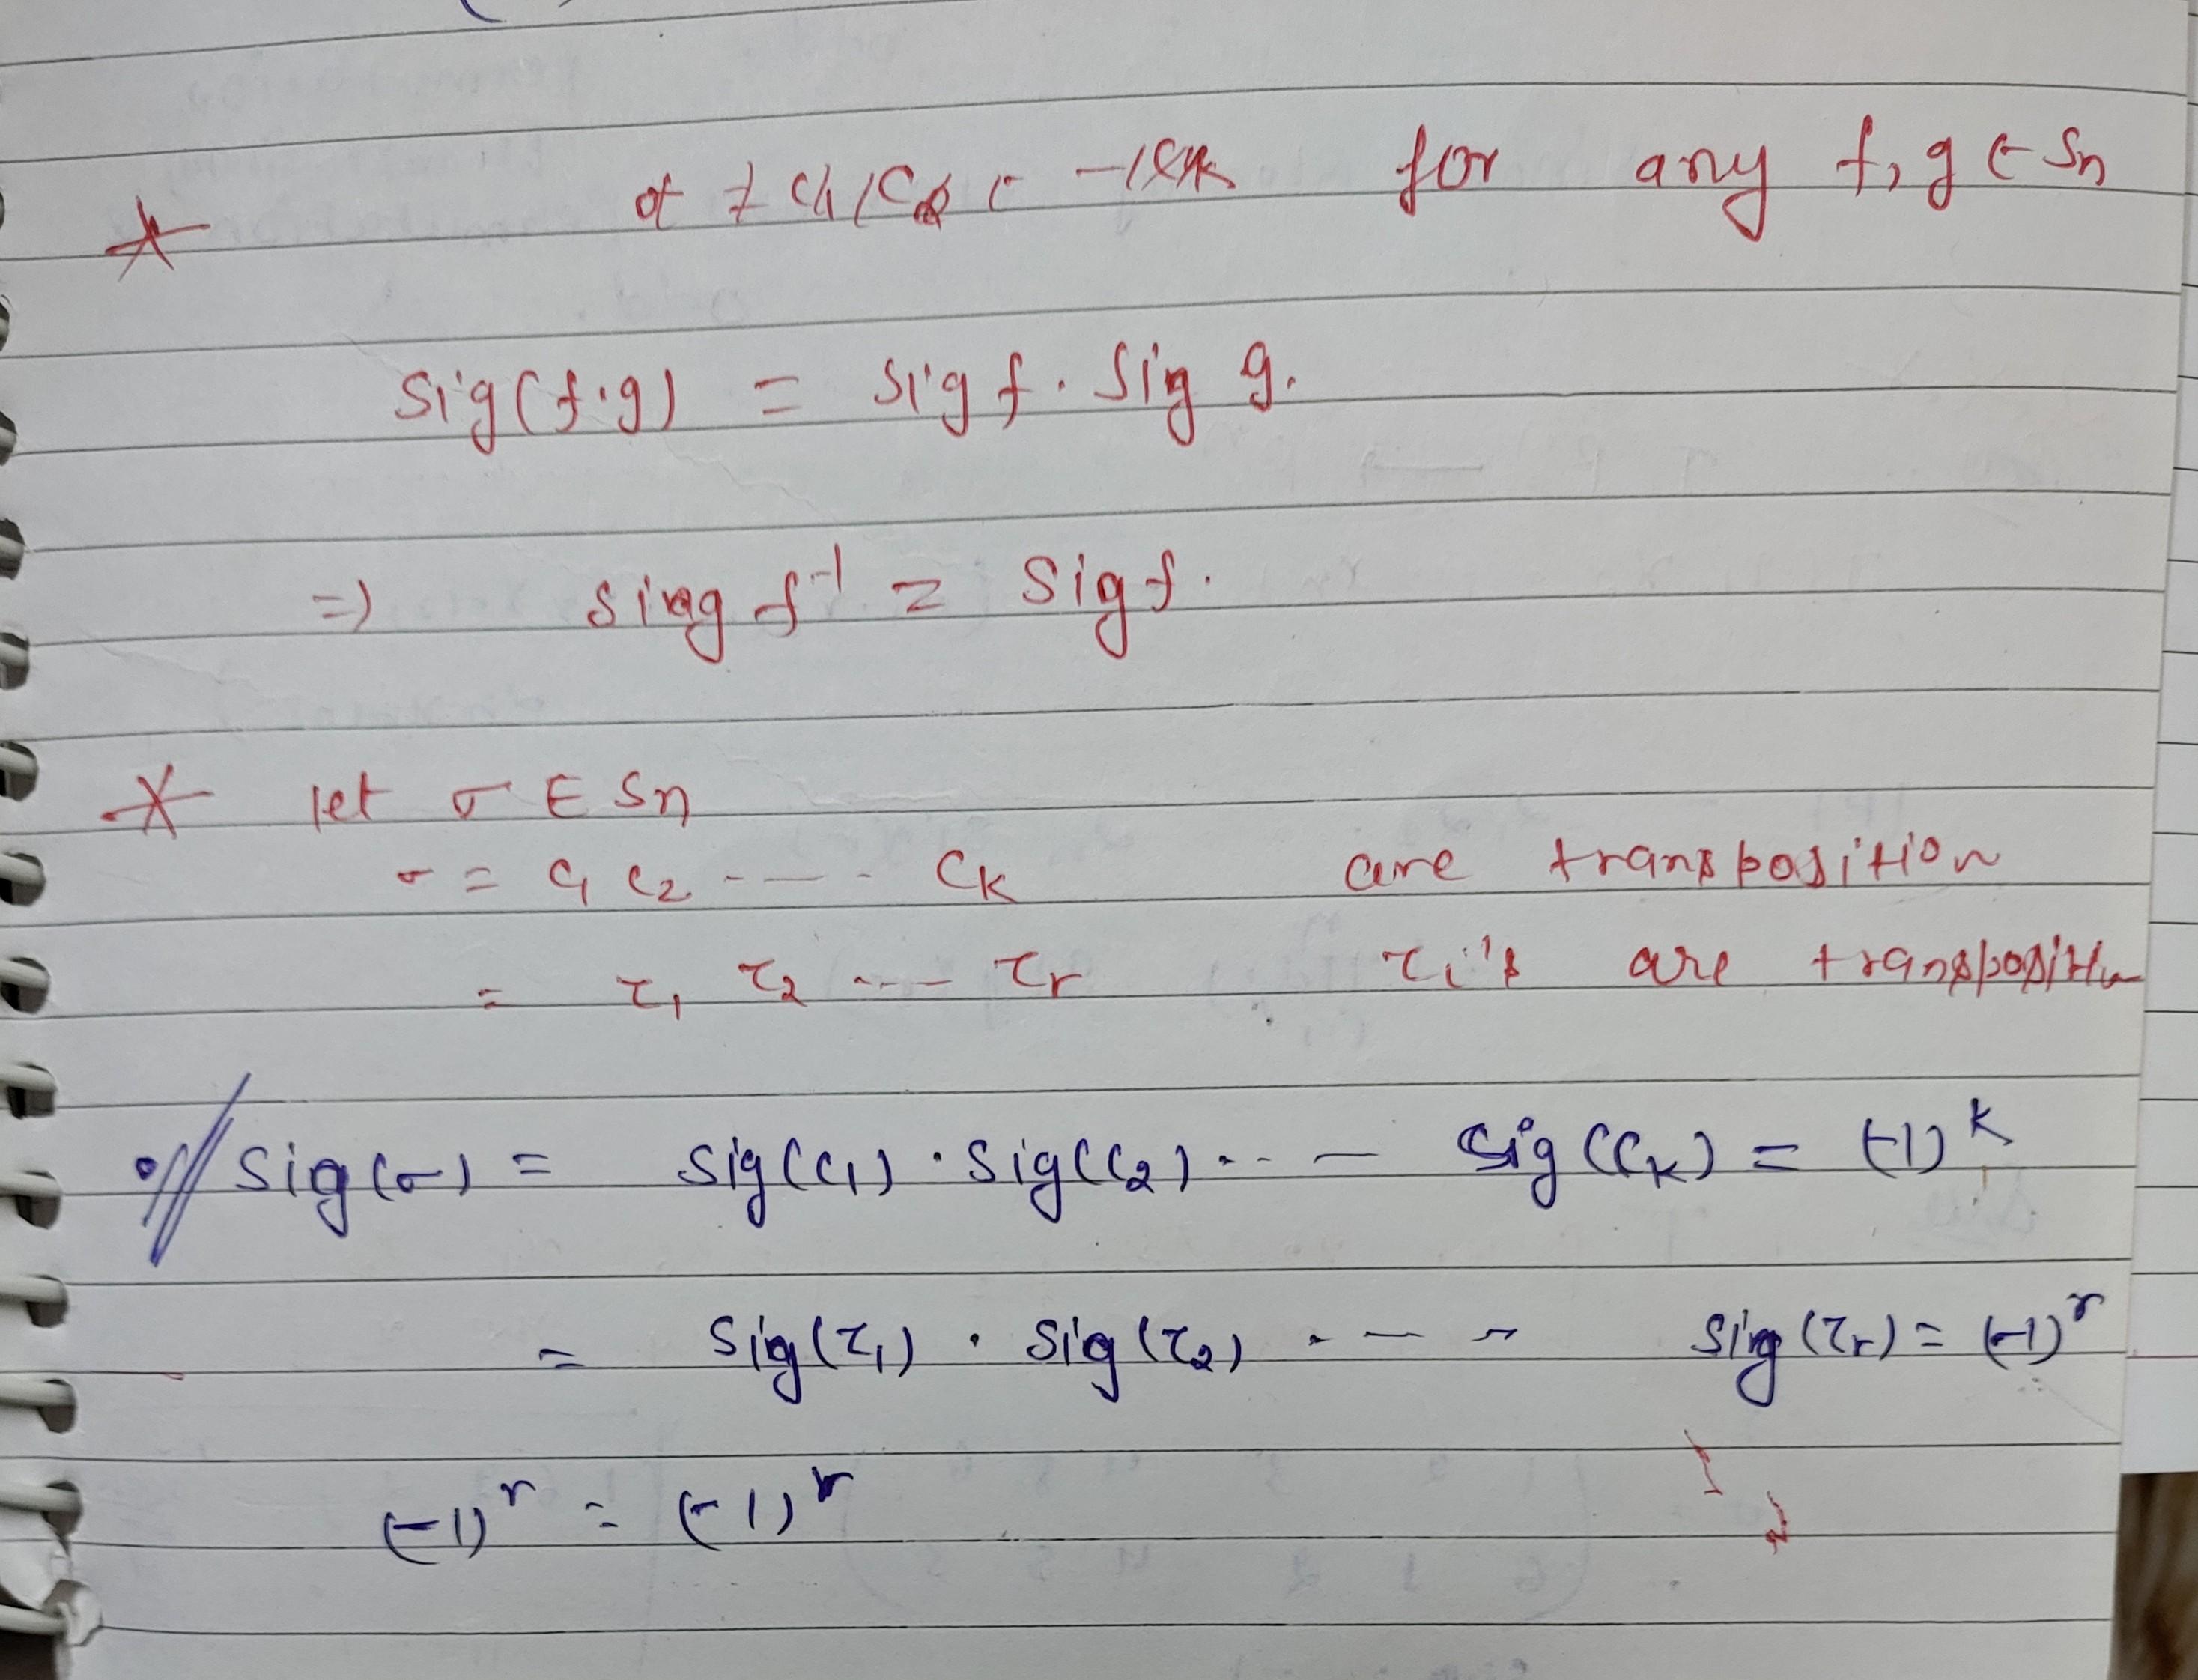 * for any f, g ∈ Sn
Sig(f.g) = Sig f . Sig g.
=) Sig f⁻¹ = Sig f.
* let σ ∈ Sn
σ = C₁ C₂ ---- Cₖ are transposition
= τ₁ τ₂ ---- τᵣ τᵢ's are transposition
Sig(σ) = Sig(C₁) . Sig(C₂) ... — Sig(Cₖ) = (-1)ᵏ
= Sig(τ₁) . Sig(τ₂) . — - Sig(τᵣ) = (-1)ʳ
(-1)ʳ = (-1)ʳ